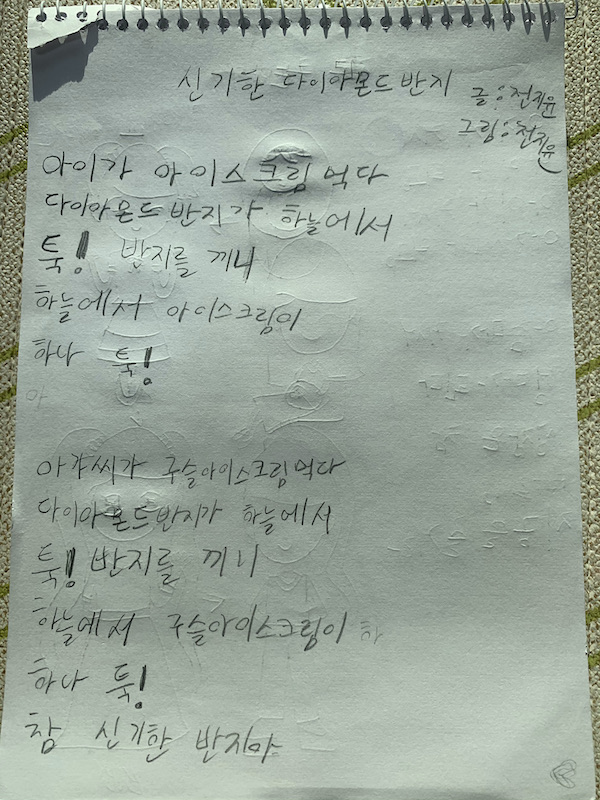 신기한 다이아몬드 반지
글:전지윤
그림:전지윤
아이가 아이스크림 먹다
다이아몬드 반지가 하늘에서
툭! 반지를 끼니
하늘에서 아이스크림이
하나 툭!
아갸씨가 구슬아이스크림 먹다
다이아몬드반지가 하늘에서
툭! 반지를 끼니
하늘에서 구슬아이스크림이
하나 툭!
참 신기한 반지야